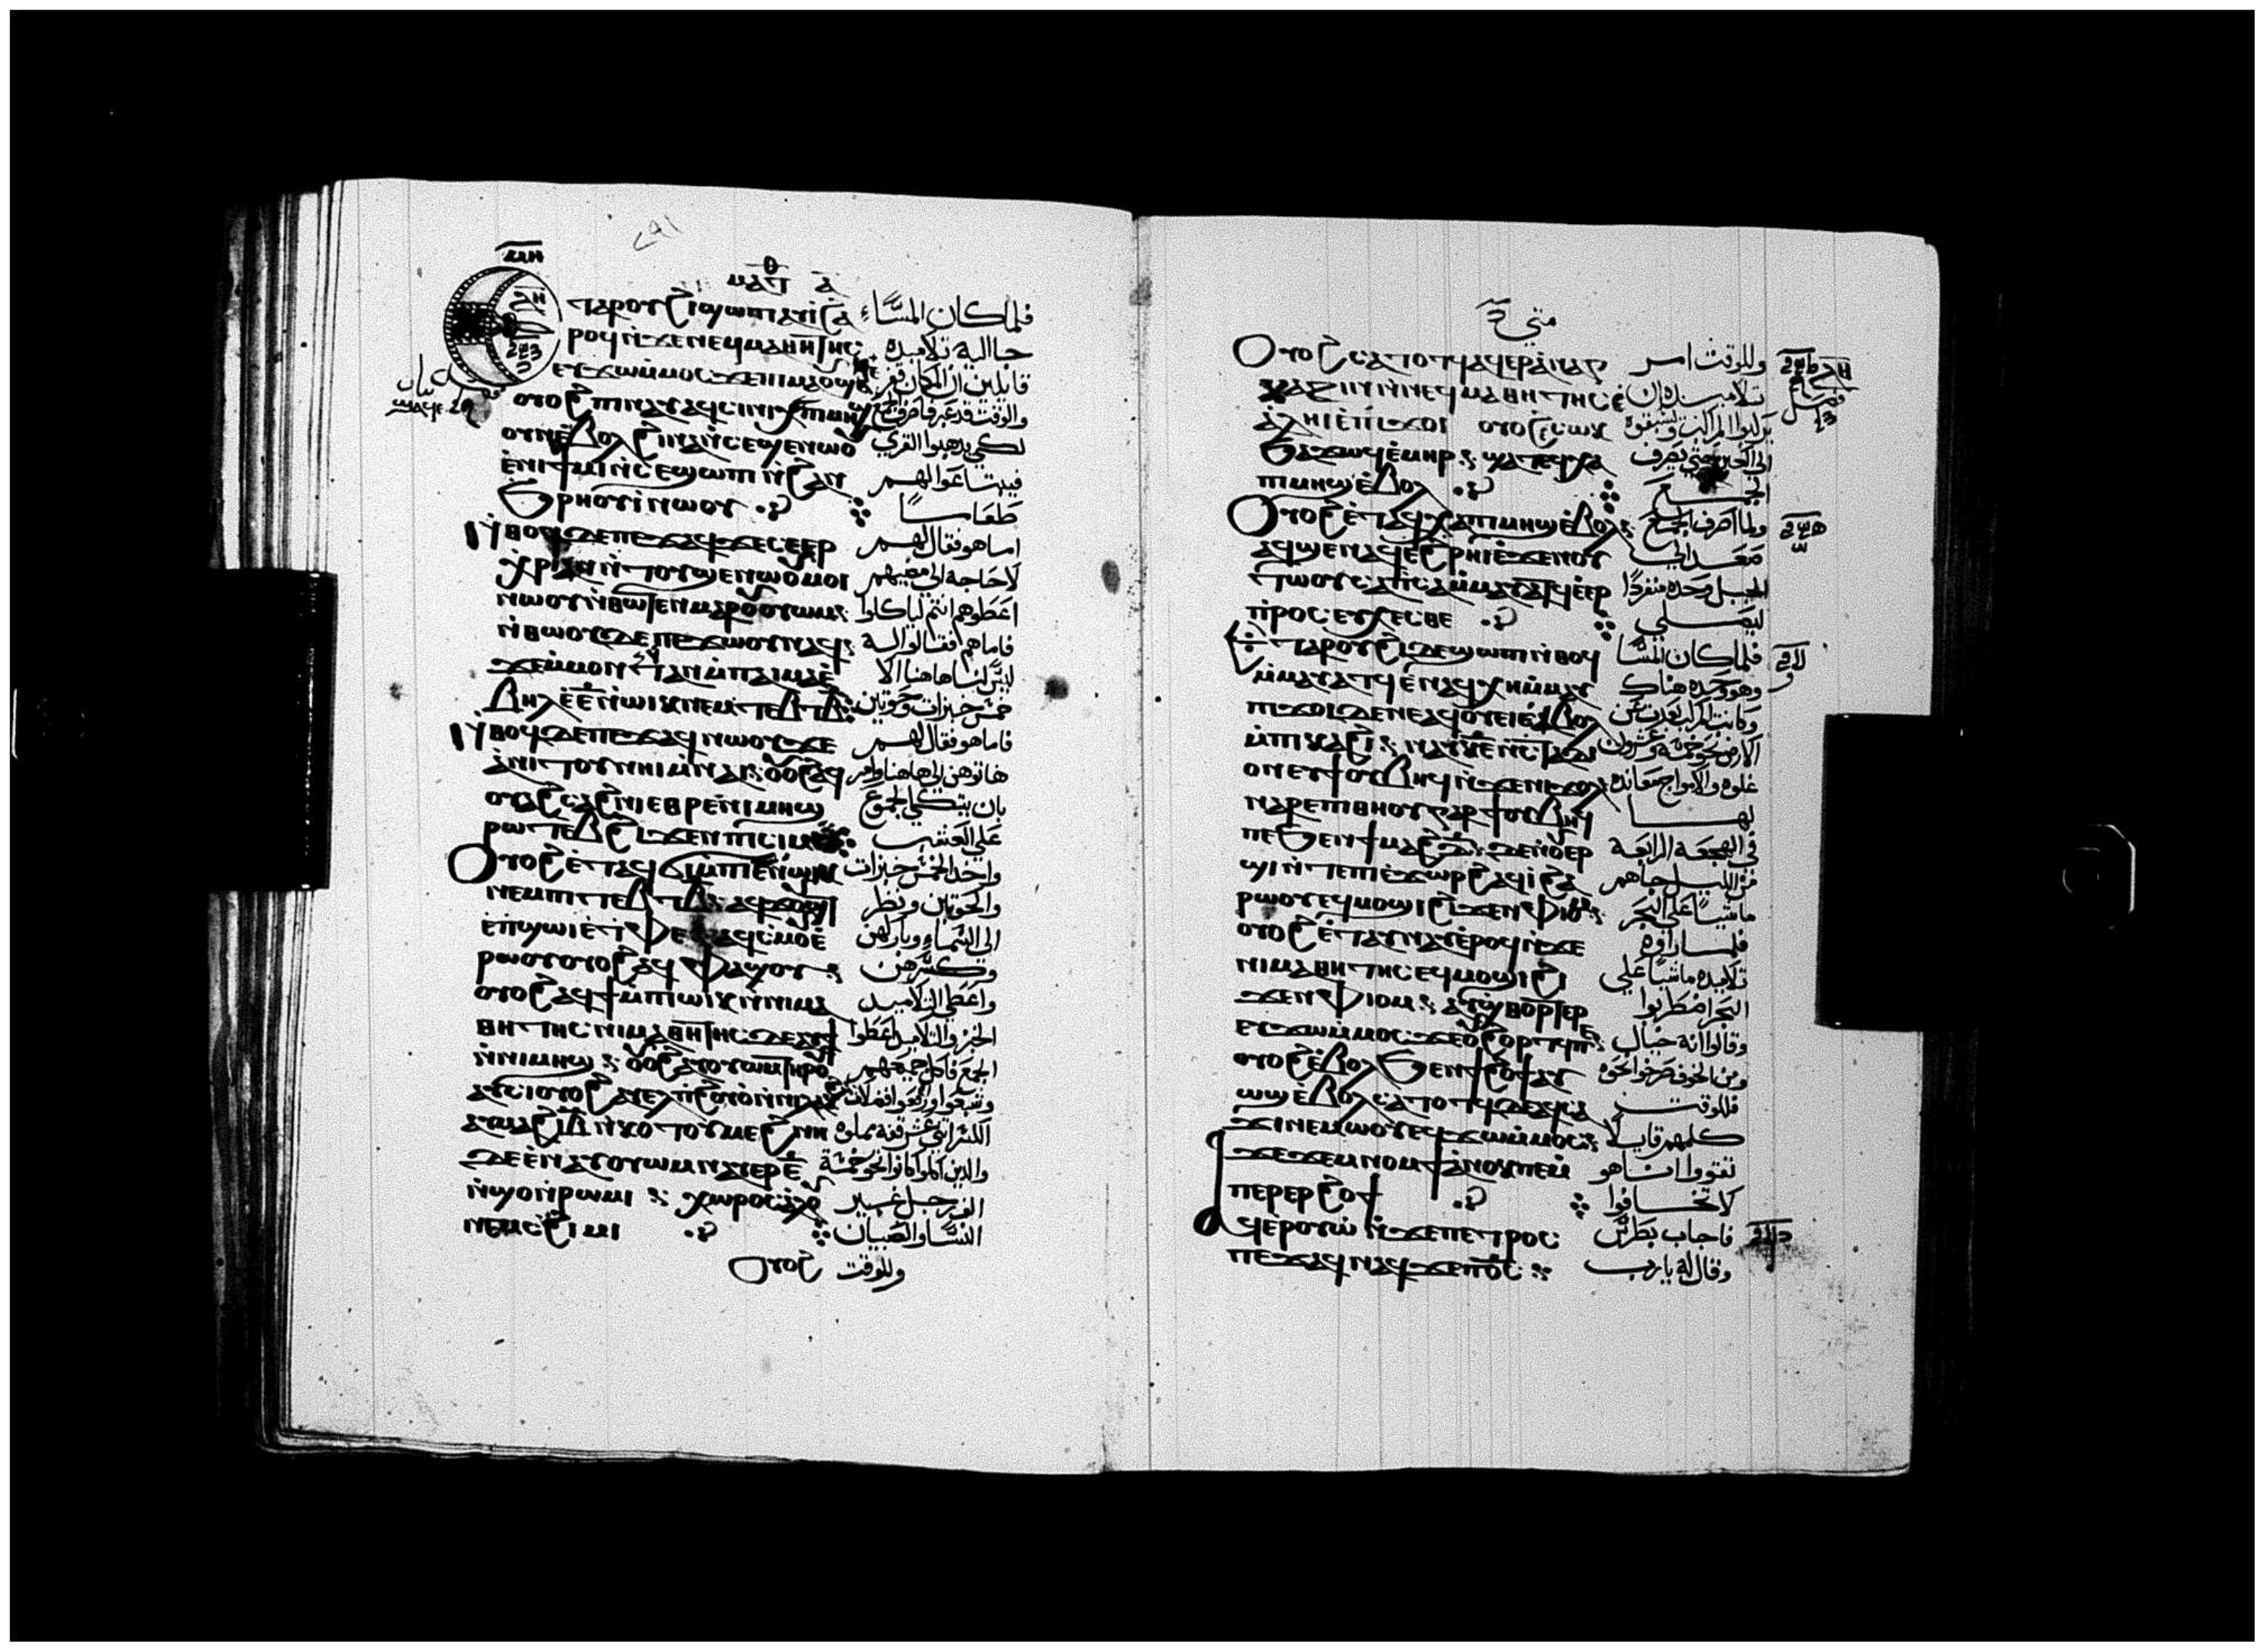 ⲙⲁⲧ ⲁ
ⲧⲁⲣⲟⲩϩⲓ ϣⲱⲡⲓ ⲁⲩⲓ ϩⲁ فلما كان المساء
ⲣⲟϥ ⲛϫⲉ ⲛⲉϥⲙⲁⲑⲏⲧⲏⲥ جا اليه تلاميذه
ⲉⲩϫⲱ ⲙⲙⲟⲥ ϫⲉ ⲡⲓⲙⲁ ⲟⲩϣⲁϥⲉ قايلين ان المكان قفر
ⲟⲩⲟϩ ⲡⲓⲛⲁⲩ ⲁϥⲥⲓⲛⲓ والوقت قد عبر فاصرف الجمع
لكي يذهبوا القري
ⲉⲛⲓϯⲙⲓ ⲛⲥⲉϣⲱⲡ ⲛϩⲁⲛ فيبتاعوا لهم
ϧⲣⲏⲟⲩⲓ ⲛⲱⲟⲩ طعاما
ⲛⲑⲟϥ ⲇⲉ ⲡⲉϫⲁϥ ϫⲉ ⲥⲉⲉⲣ اما هو فقال لهم
ⲭⲣⲓⲁ ⲁⲛ ⲛⲧⲟⲩϣⲉⲛⲱⲟⲩ ⲙⲟⲓ لا حاجة الي مضيهم
ⲛⲱⲟⲩ ⲛⲑⲱⲧⲉⲛ ⲙⲁⲣⲟⲩⲟⲩⲱⲙ اعطوهم انتم لياكلوا
ⲛⲑⲱⲟⲩ ⲇⲉ ⲡⲉϫⲱⲟⲩ ⲛⲁϥ فاما هم فقالوا له
ϫⲉ ⲙⲙⲟⲛⲧⲁⲛ ⲙⲡⲁⲓⲙⲁ ⲉ ليس لنا هاهنا الا
ⲃⲏⲗ ⲉⲉ ⲛⲱⲓⲕ ⲛⲉⲙ ⲧⲉⲃⲧ ⲃ خمس خبزات وحوتين
ⲛⲑⲟϥ ⲇⲉ ⲡⲉϫⲁϥ ⲛⲱⲟⲩ ϫⲉ فاما هو فقال لهم
ⲁⲛⲓⲧⲟⲩ ⲛⲏⲓ ⲙⲛⲁⲓ ⲟⲩⲟϩ ⲁϥ هاتوهن الي هاهنا وامر
ⲟⲩⲁϩⲥⲁϩⲛⲓ ⲉⲑⲣⲉ ⲛⲓⲙⲏϣ بان يتكي الجموع
ⲣⲱⲧⲉⲃ ϩⲓϫⲉⲛ ⲡⲓⲥⲓⲙ علي العشب
ⲟⲩⲟϩ ⲉⲧⲁϥϭⲓ ⲙⲡⲓⲉ ⲛⲱⲓⲕ واخذ الخمس خبزات
ⲛⲉⲙ ⲡⲓⲧⲉⲃⲧ ⲃ ⲁϥϫⲟⲩϣⲧ والحوتين ونظر
ⲉⲡϣⲱⲓ ⲉⲧⲫⲉ ⲁϥⲥⲙⲟⲩ ⲉ الي السماء وباركهن
ⲣⲱⲟⲩ ⲟⲩⲟϩ ⲁϥⲫⲁϣⲟⲩ وكسرهن
ⲟⲩⲟϩ ⲁϥϯ ⲙⲡⲓⲱⲓⲕ ⲛⲛⲓⲙⲁ واعطي التلاميد
ⲑⲏⲧⲏⲥ ⲛⲓⲙⲁⲑⲏⲧⲏⲥ ⲇⲉ ⲁⲩϯ الخبز والتلاميد اعطوا
ⲛⲛⲓⲙⲏϣ ⲟⲩⲟϩ ⲁⲩⲟⲩⲱⲙ ⲧⲏⲣⲟⲩ الجمع فاكل جميعهم
ⲁⲩⲥⲓ ⲟⲩⲟϩ وشبعوا ورفعوا فضلات
ⲁⲩⲙⲁϩ ⲓⲃ ⲛⲕⲟⲧ ⲉⲩⲙⲉϩ ⲛⲏ الكسر اثني عشر قفة مملوه
ⲇⲉ ⲉⲛⲁⲩⲟⲩⲱⲙ ⲛⲁⲩⲉⲣ ⲉ والدين اكلوا كانوا نحو خمسة
ⲛϣⲟ ⲛⲣⲱⲙⲓ ⲭⲱⲣⲓⲥ ⲁⲗⲟⲩ الف رجل غير
ⲛⲉⲙ ⲥϩⲓⲙⲓ النسا والصبيان
ⲟⲩⲟϩ وللوقت
متي
ⲟⲩⲟϩ ⲥⲁⲧⲟⲧϥ ⲁϥⲉⲣⲁⲛⲁⲅ وللوقت امر
ⲕⲁⲍⲓⲛ ⲛⲛⲉϥⲙⲁⲑⲏⲧⲏⲥ ⲉ تلاميذه ان
ⲁⲗⲏⲓ ⲉⲡⲓϫⲟⲓ ⲟⲩⲟϩ ⲉⲥⲱⲕ يركبوا المراكب ويسبقوه
ϧⲁϫⲱϥ ⲉⲙⲏⲣ ϣⲁⲧⲉϥⲭⲁ الي العبر حتي يصرف
ⲡⲓⲙⲏϣ ⲉⲃⲟⲗ الجمع
ⲟⲩⲟϩ ⲉⲧⲁϥⲭⲁ ⲡⲓⲙⲏϣ ⲉⲃⲟⲗ ولما اصرف الجمع
ⲁϥϣⲉⲛⲁϥ ⲉϩⲣⲏⲓ ⲉϫⲉⲛ ⲟⲩ صعد الي
ⲧⲱⲟⲩ ⲥⲁⲡⲥⲁ ⲙⲙⲁⲩⲁⲧϥ ⲉⲉⲣ الجبل وحده منفردا
ⲡⲣⲟⲥⲉⲩⲭⲉⲥⲑⲉ ليصلي
ⲧⲁⲣⲟⲩϩⲓ ⲇⲉ ϣⲱⲡⲓ ⲛⲑⲟϥ فلما كان المسا
ⲙⲙⲁⲩⲁⲧϥ ⲉⲛⲁϥⲭⲏ ⲙⲙⲁⲩ وهو وحده هناك
ⲡⲓϫⲟⲓ ⲇⲉ ⲛⲉⲁϥⲟⲩⲉⲓ ⲉⲃⲟⲗ وكانت المركب بعدت عن
ⲙⲡⲓⲕⲁϩⲓ الارض نحو خمسة وعشرون
غلوه والامواج تعانده
ⲛⲁⲣⲉ ⲡⲓⲑⲏⲟⲩ ⲅⲁⲣ ϯⲟⲩⲃⲏϥ لها
ⲡⲉ ϧⲉⲛ ϯⲙⲁϩⲇ ⲇⲉ ⲛⲟⲩⲉⲣ في الهجعة الرابعة
ϣⲓ ⲛⲧⲉ ⲡⲓⲉϫⲱⲣϩ ⲁϥⲓ ϩⲁ من الليل جا هم
ⲣⲱⲟⲩ ⲉϥⲙⲟϣⲓ ϩⲓϫⲉⲛ ⲫⲓⲟⲙ ماشيا علي البحر
ⲟⲩⲟϩ ⲉⲧⲁⲩⲛⲁⲩ ⲉⲣⲟϥ ⲛϫⲉ فلما راوه
ⲛⲓⲙⲁⲑⲏⲧⲏⲥ ⲉϥⲙⲟϣⲓ ϩⲓ تلاميذه ماشيا علي
ϫⲉⲛ ⲫⲓⲟⲙ ⲁⲩϣⲑⲟⲣⲧⲉⲣ البحر اضطربوا
ⲉⲩϫⲱ ⲙⲙⲟⲥ ϫⲉ ⲟⲩϩⲟⲣⲧϥ ⲡⲉ وقالوا انه خيال
ⲟⲩⲟϩ ⲉⲃⲟⲗ ϧⲉⲛ ϯϩⲟϯ ⲁⲩ ومن الخوف صرخوا
ⲱϣ ⲉⲃⲟⲗ ⲥⲁⲧⲟⲧϥ ⲇⲉ ⲁϥⲥⲁ فللوقت
ϫⲓ ⲛⲉⲙⲱⲟⲩ ⲉϥϫⲱ ⲙⲙⲟⲥ كلمهم قايلا
ϫⲉ ϫⲉⲙⲛⲟⲙϯ ⲁⲛⲟⲕ ⲡⲉ ⲙ تقووا انا هو
ⲡⲉⲣⲉⲣϩⲟϯ لا تخافوا
ⲁϥⲉⲣⲟⲩⲱ ⲛϫⲉ ⲡⲉⲧⲣⲟⲥ فاجاب بطرس
ⲡⲉϫⲁϥ ⲛⲁϥ ϫⲉ ⲡⲟⲥ وقال له يا رب